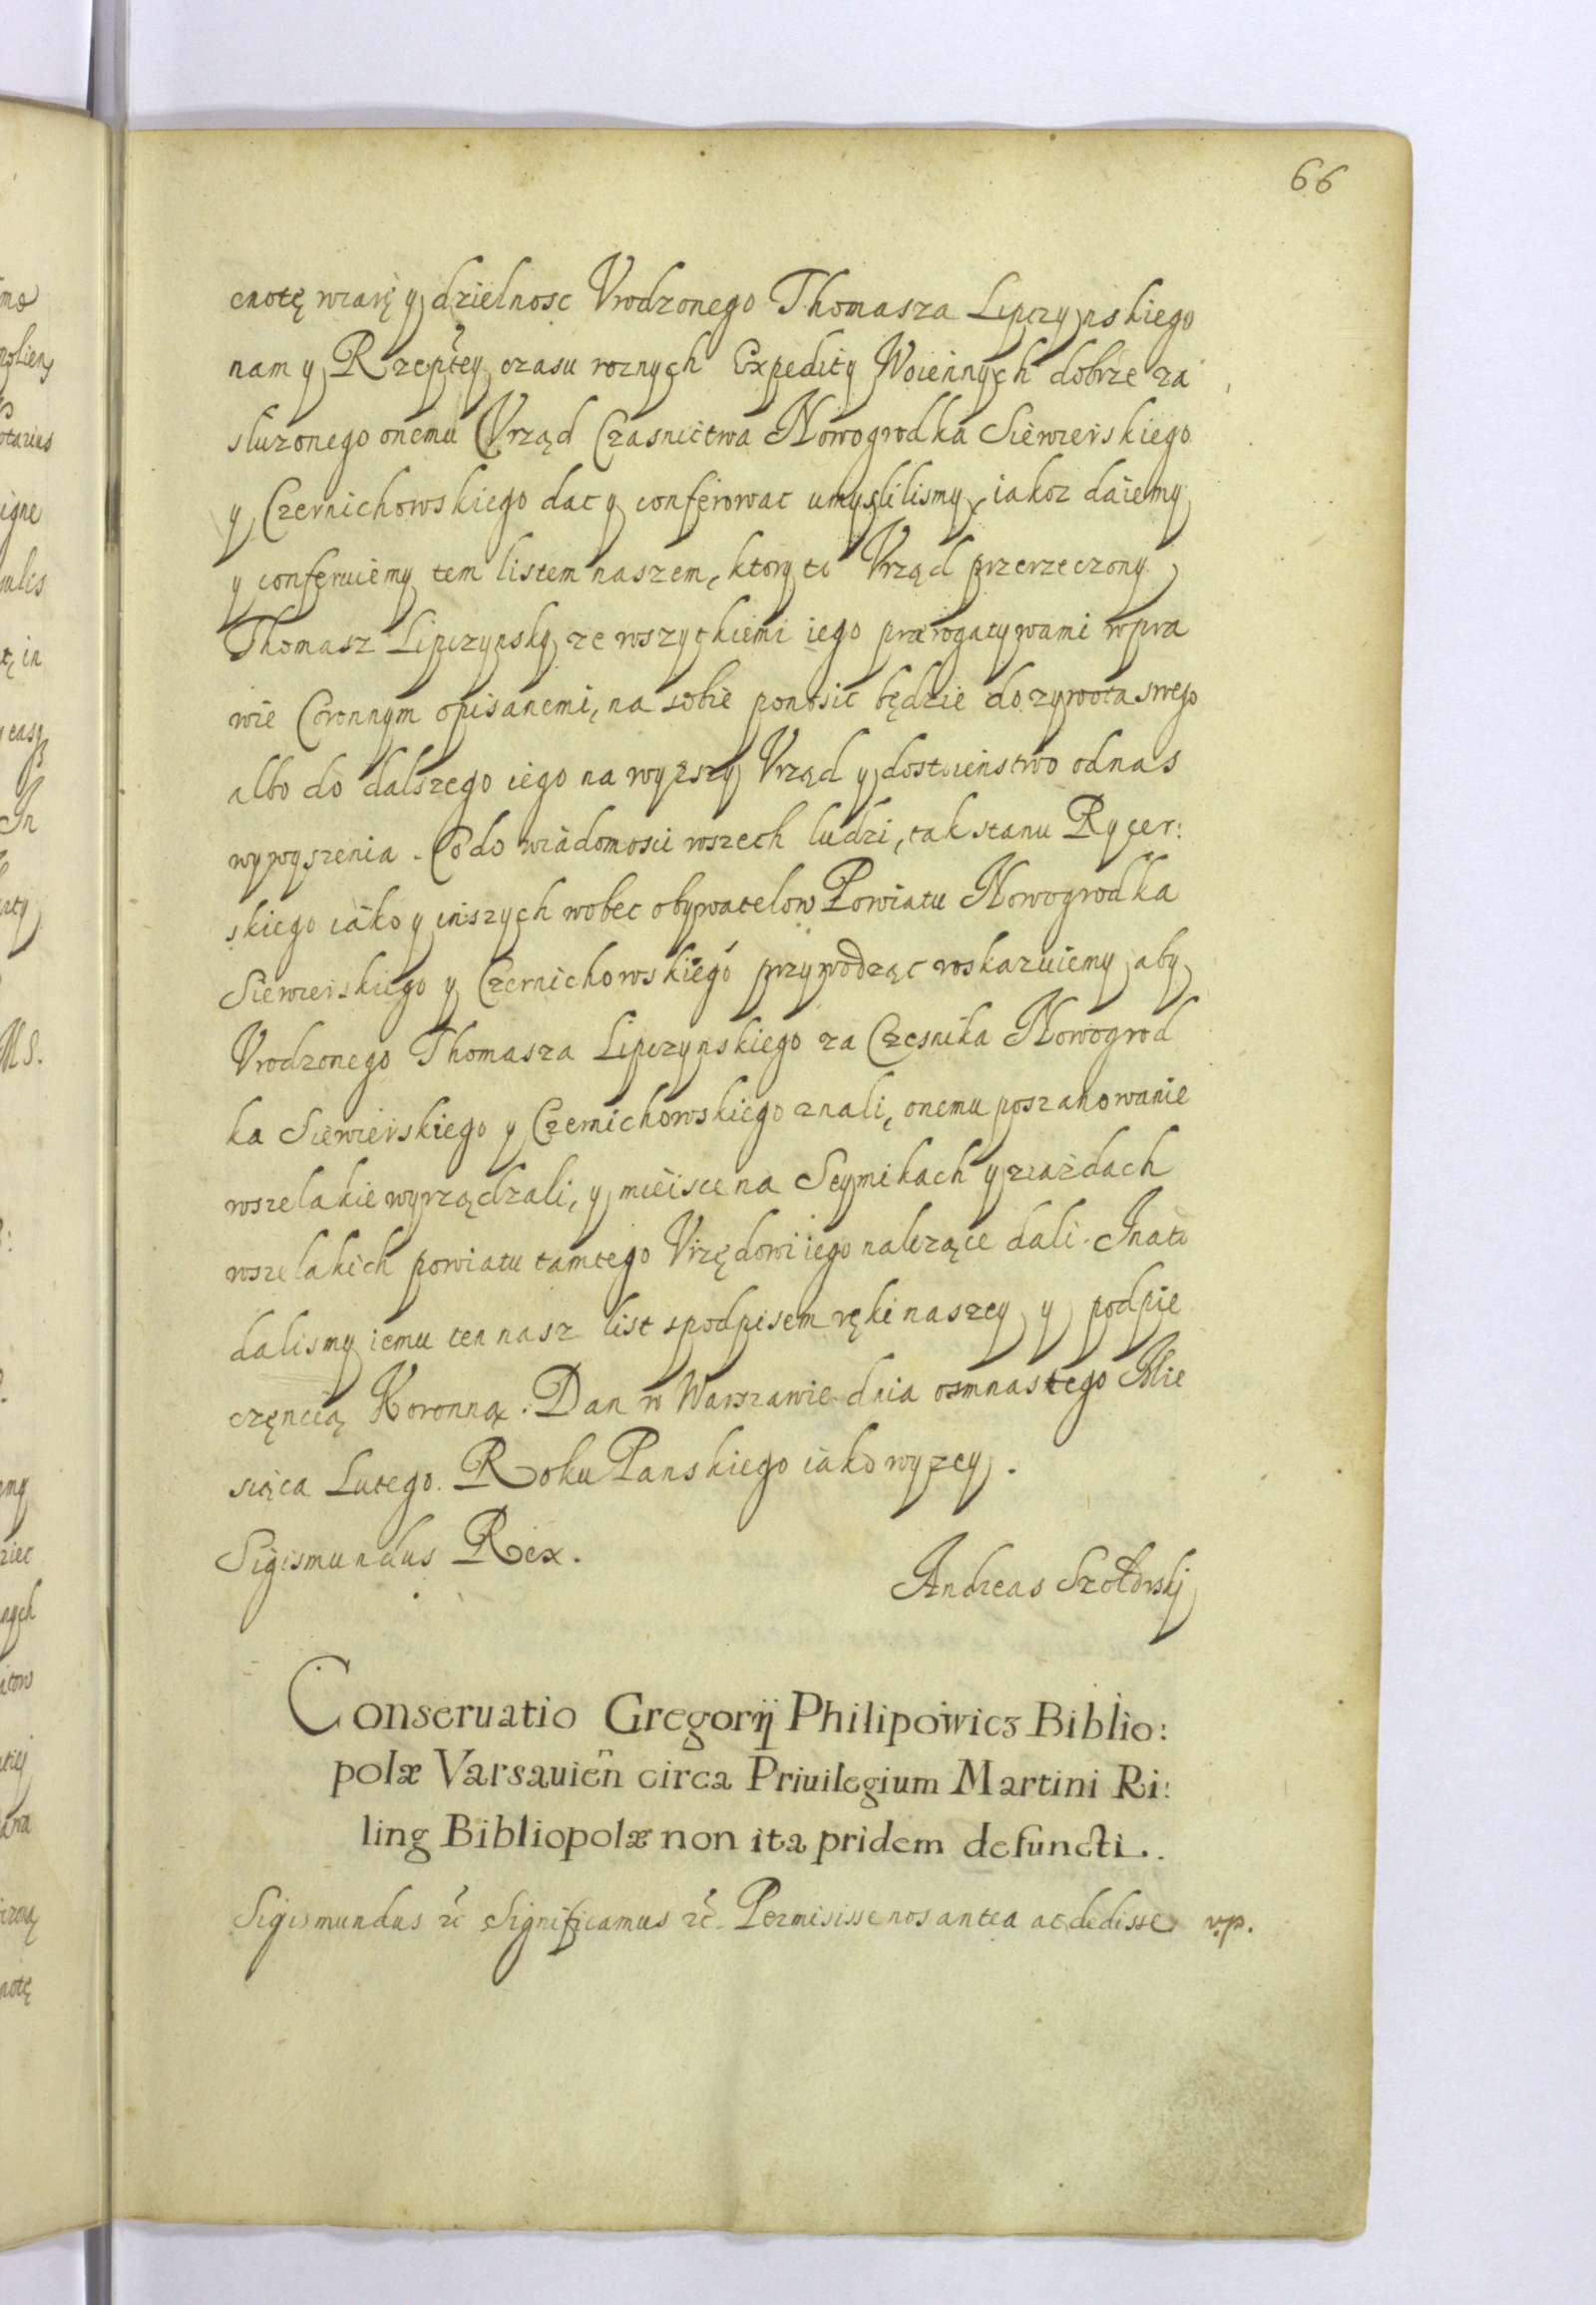 66
cnotę wiarę y dzielnosc Vrodzonego Thomasza Lipczynskiego
nam y Rzeptey czasu roznych Expedity Woiennych dobrze za
służonego onemu Vrząd Czasnictwa Nowogrodka Siewierskiego
y Czernichowskiego dac y conferowac umyslilismy, iakoz daiemy
y conferuiemy tem listem naszem, ktory to Vrząd przerzeczony
Thomasz Lipczynsky ze wszytkiemi iego prærogatywami w pra
wie Coronnym opisanemi, na sobie ponosic będzie do zywota swego
albo do dalszego iego na wyzszy Vrząd y dostoienstwo od nas
wywyszenia. Co do wiadomosci wszech ludzi, tak stanu Rycer:
skiego iako y inszych wobec obywatelow Powiatu Nowogrodka
Siewierskiego y Czernichowskiego przywodząc wskazuiemy aby
Vrodzonego Thomasza Lipczynskiego za Czesnika Nowogrod
ka Siewierskiego y Czernichowskiego znali, onemu poszanowanie
wszelakie wyrządzali, y mieisce na Seymikach y ziazdach
wszelakich powiatu tamtego Vrzędowi iego nalezące dali. Inato
dalismy iemu ten nasz list spodpisem ręki naszey y podpie
częncią Koronną. Dan w Warszawie dnia osmnastego Mie
siąca Lutego. Roku Panskiego iako wyzey.
Sigismundus Rex.
Andreas Szołdrskj
Conseruatio Gregorij Philipowicz Biblio:
polæ Varsauien̄ circa Priuilegium Martini Ri:
ling Bibliopolæ non ita pridem defuncti..
Sigismundus etc Significamus etc. Permisisse nos antea ac dedisse vp.